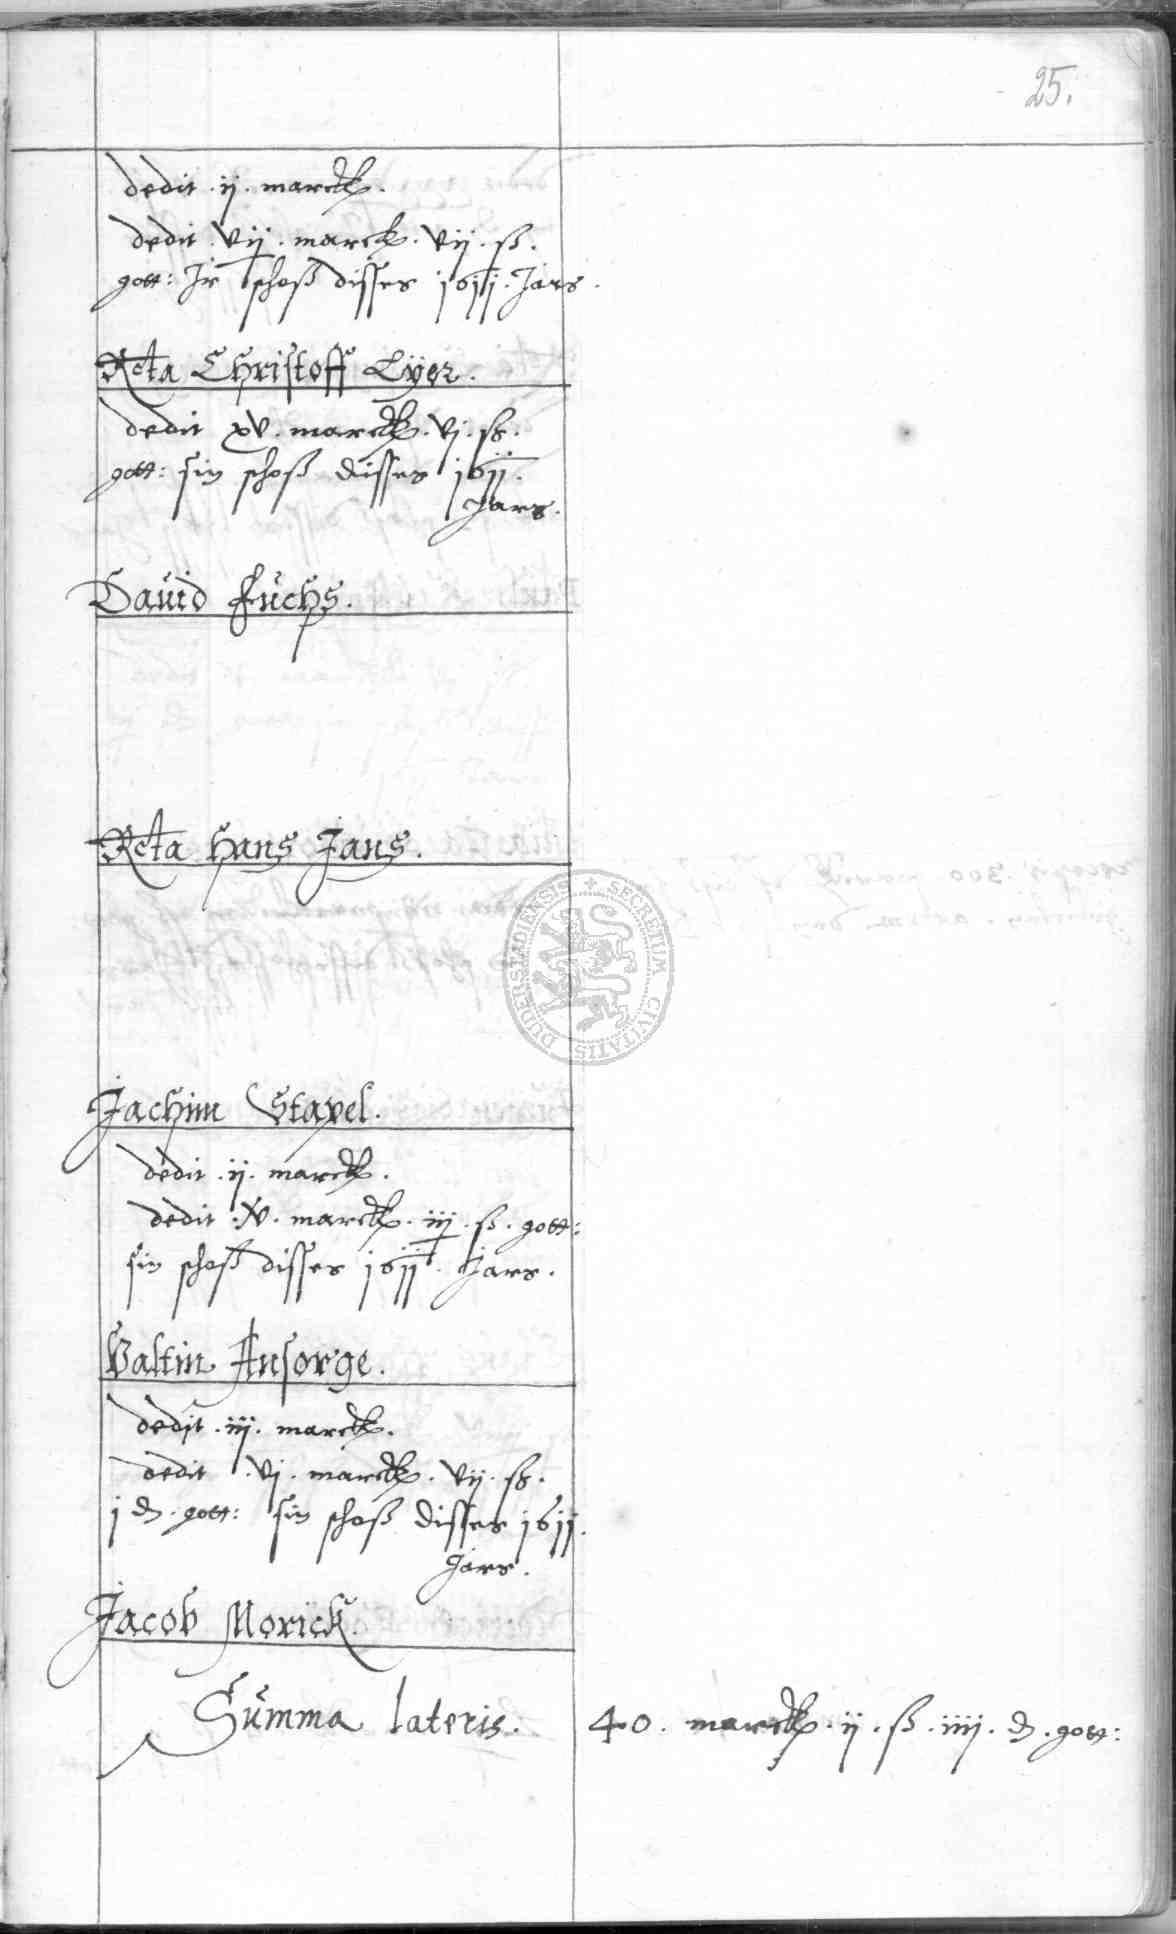 25.
dedit . ij . marck .
dedit . vij . marck . vij . ß .
gott: Jr schoß disses 1611 . Jars .
Rcta Christoff Eyer .
dedit xv . marck . vj . ß .
gott: sin schoß disses 1611 .
Jars .
Dauid Fuchs .
Rcta Hans Jans .
DUDERSTADIENSIS + SECRETUM CIVITATIS
Jachim Stapel .
dedit . ij . marck .
dedit . x . marck . iij . ß . gott:
sin schoß disses 1611 . Jars .
Valtin Ansorge .
dedit . iij . marck .
dedit . vj . marck . vij . ß .
j d . gott: sin schoß disses 1611 .
Jars .
Jacob Morick .
Summa lateris . 40 . marck . ij . ß . iiij . d . gott: